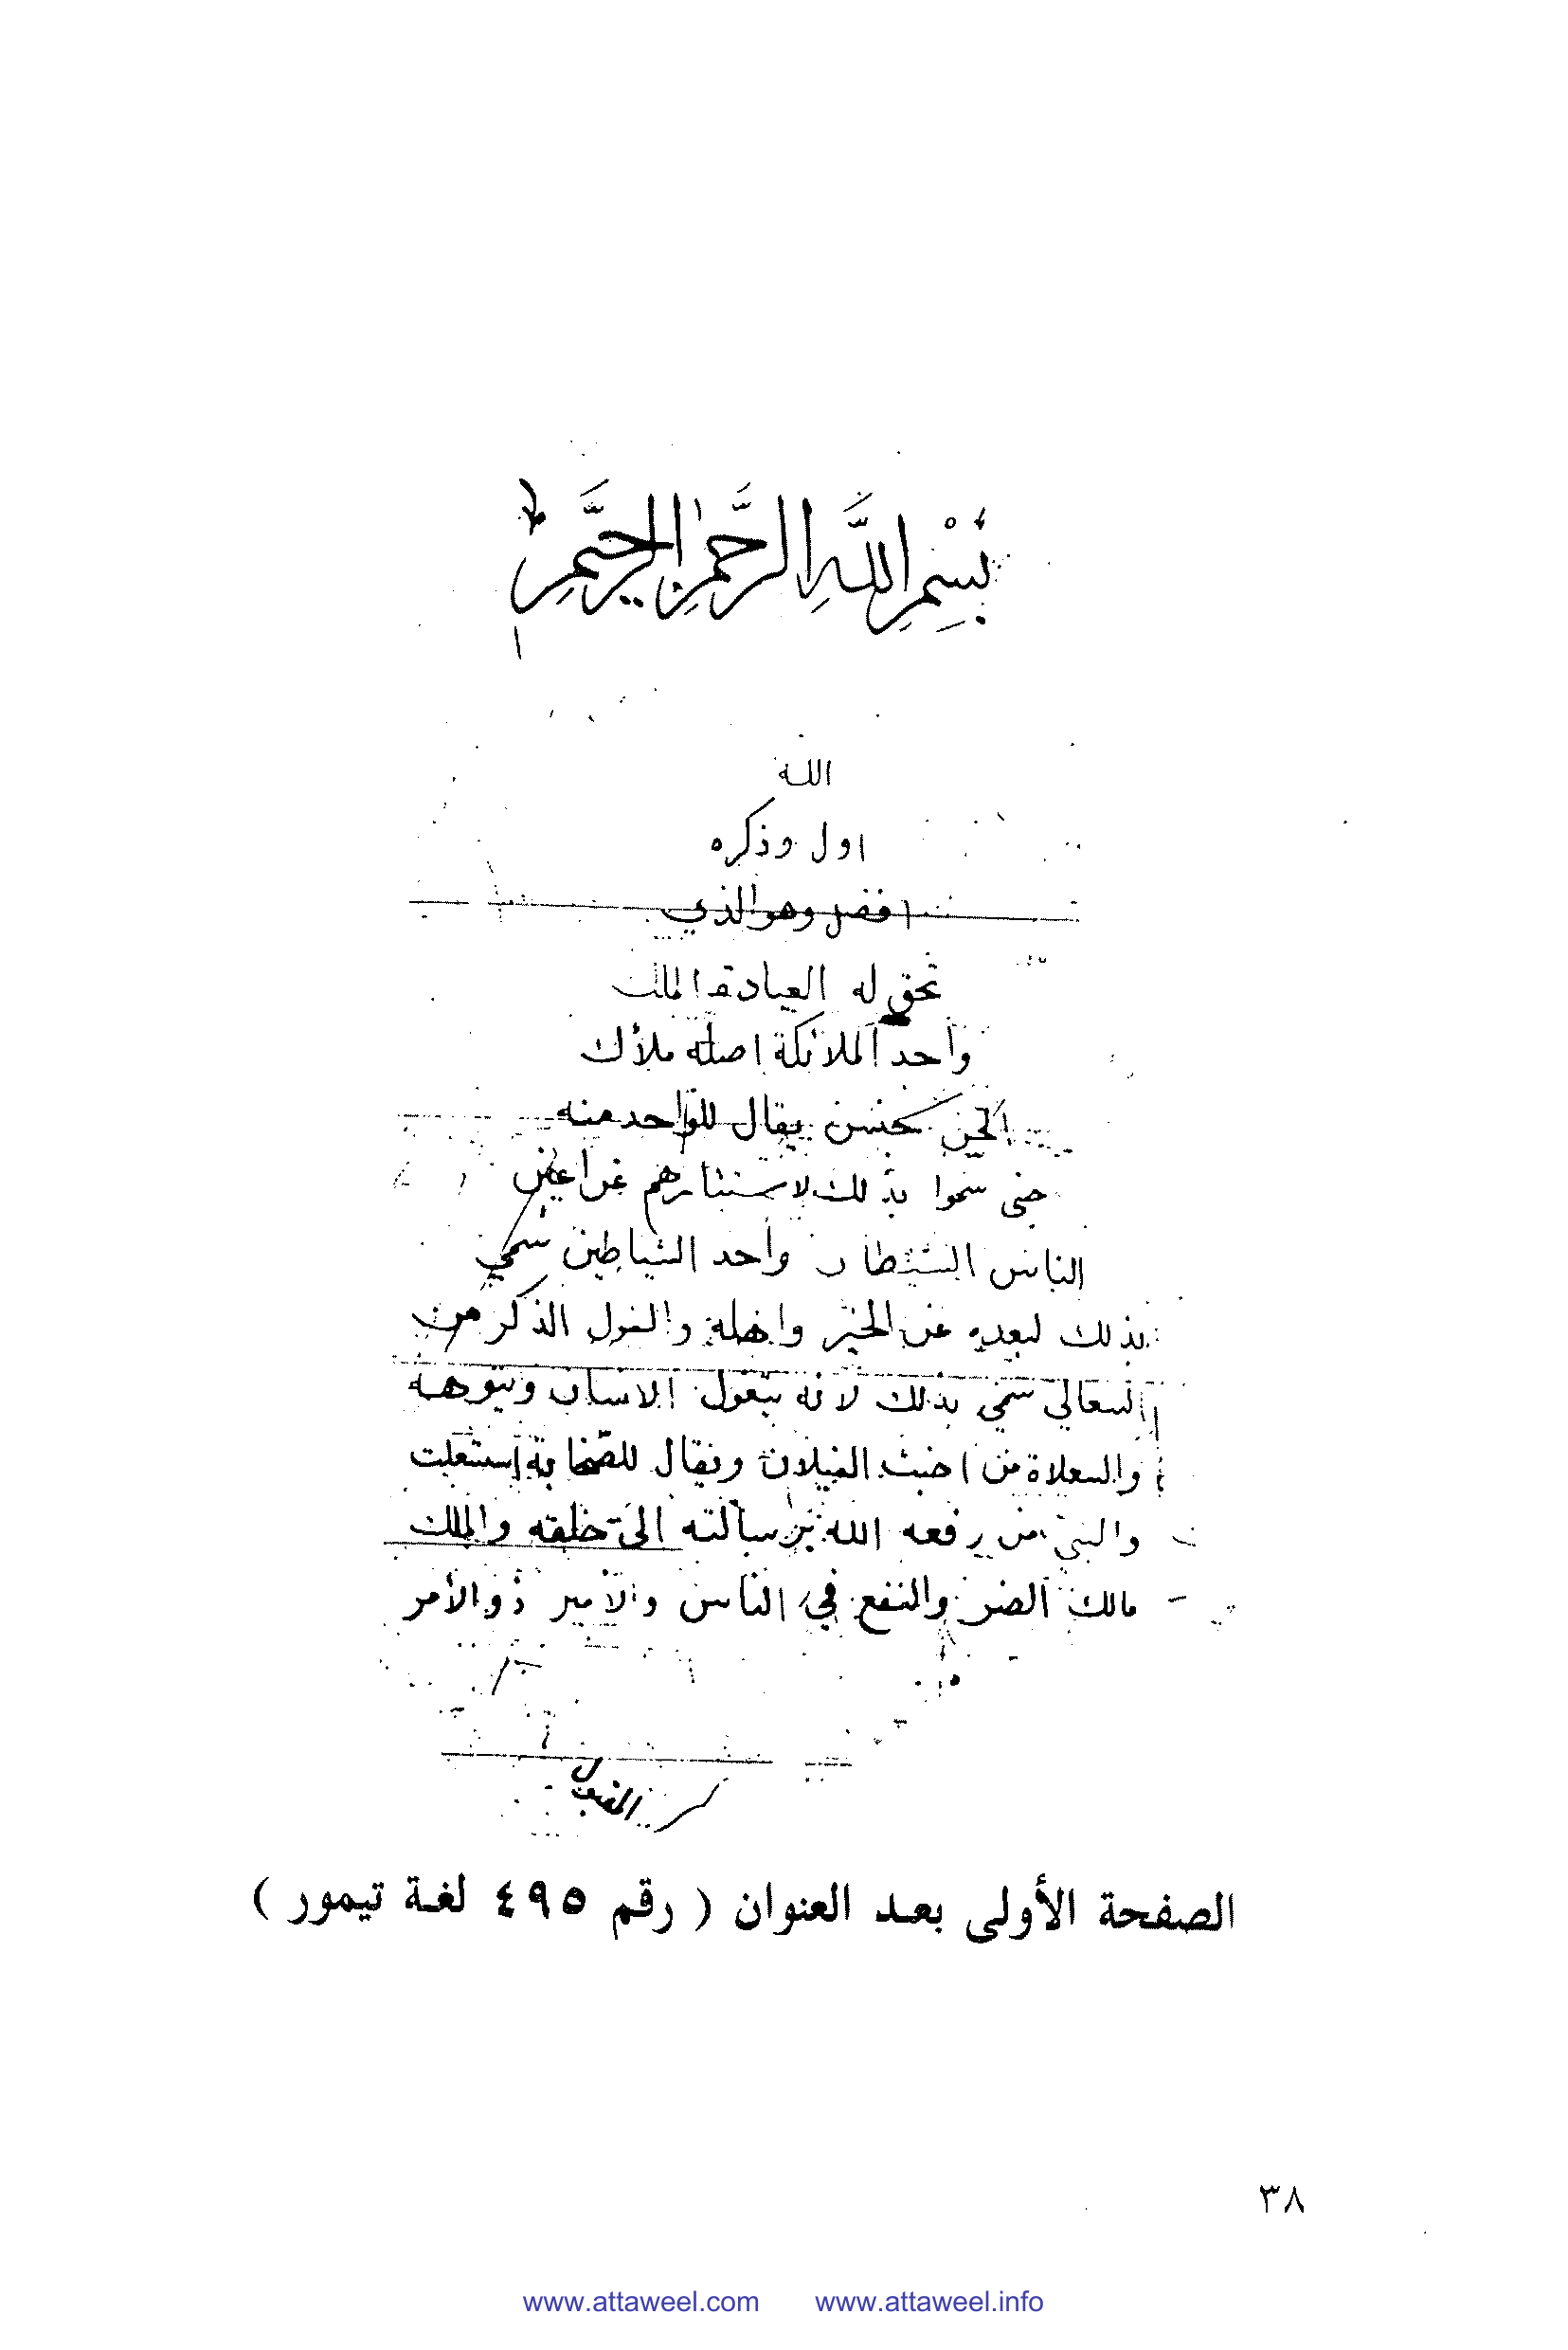 بِسْمِ اللَّهِ الرَّحْمٰنِ الرَّحِيمِ
الله
اول وذكره
افضل وهو الذي
تحق له العبادة الملك
واحد الملائكة اصله ملأك
الجن كجنس يقال للواحد منه
جني سموا بذلك لاستتارهم عن اعين
الناس الشيطان واحد الشياطين سمي
بذلك لبعده عن الخير واهله والغول الذكر من
السعالي سمي بذلك لانه يتغول الانسان ويتوهه
والسعلاة من اخبث الغيلان ويقال للصخابة استسعلت
والنبي من رفعه الله برسالته الى خلقه والملك
مالك الضر والنفع في الناس والامير ذو الامر
الصفحة الأولى بعد العنوان ( رقم ٤٩٥ لغة تيمور )
٣٨
www.attaweel.com www.attaweel.info